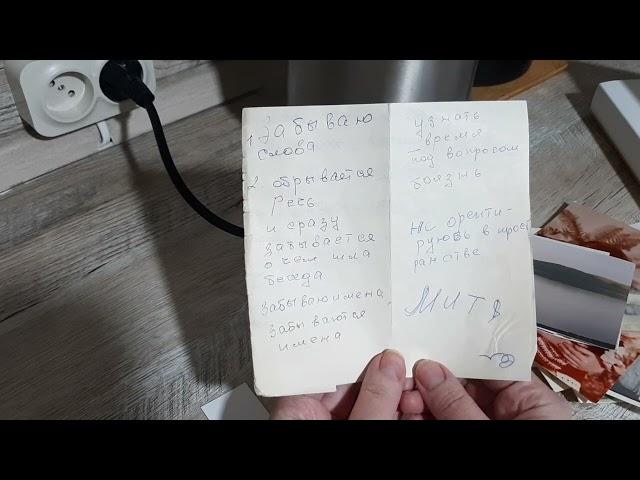 1. Забываю
слова
2. обрывается
речь
и сразу
забывается
о чем шла
беседа
Забываю имена
Забываются
имена
узнать
время
под вопросом
боязнь
Не ориенти-
руюсь в прост
ранстве
МИТВ